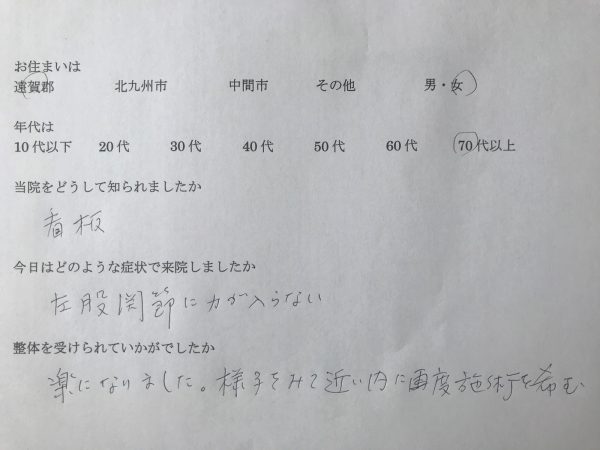 お住まいは
遠賀郡 北九州市 中間市 その他 男・女
年代は
10代以下 20代 30代 40代 50代 60代 70代以上
当院をどうして知られましたか
看板
今日はどのような症状で来院しましたか
左股関節に力が入らない
整体を受けられていかがでしたか
楽になりました。様子をみて近い内に再度施術を希む